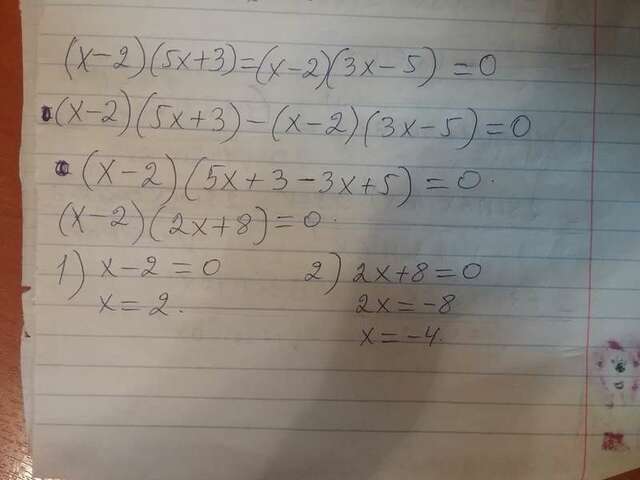 (x-2)(5x+3)=(x-2)(3x-5) =0
(x-2)(5x+3)-(x-2)(3x-5)=0
(x-2)(5x+3-3x+5)=0.
(x-2)(2x+8)=0.
1) x-2=0 2) 2x+8=0
x=2. 2x=-8
x=-4.